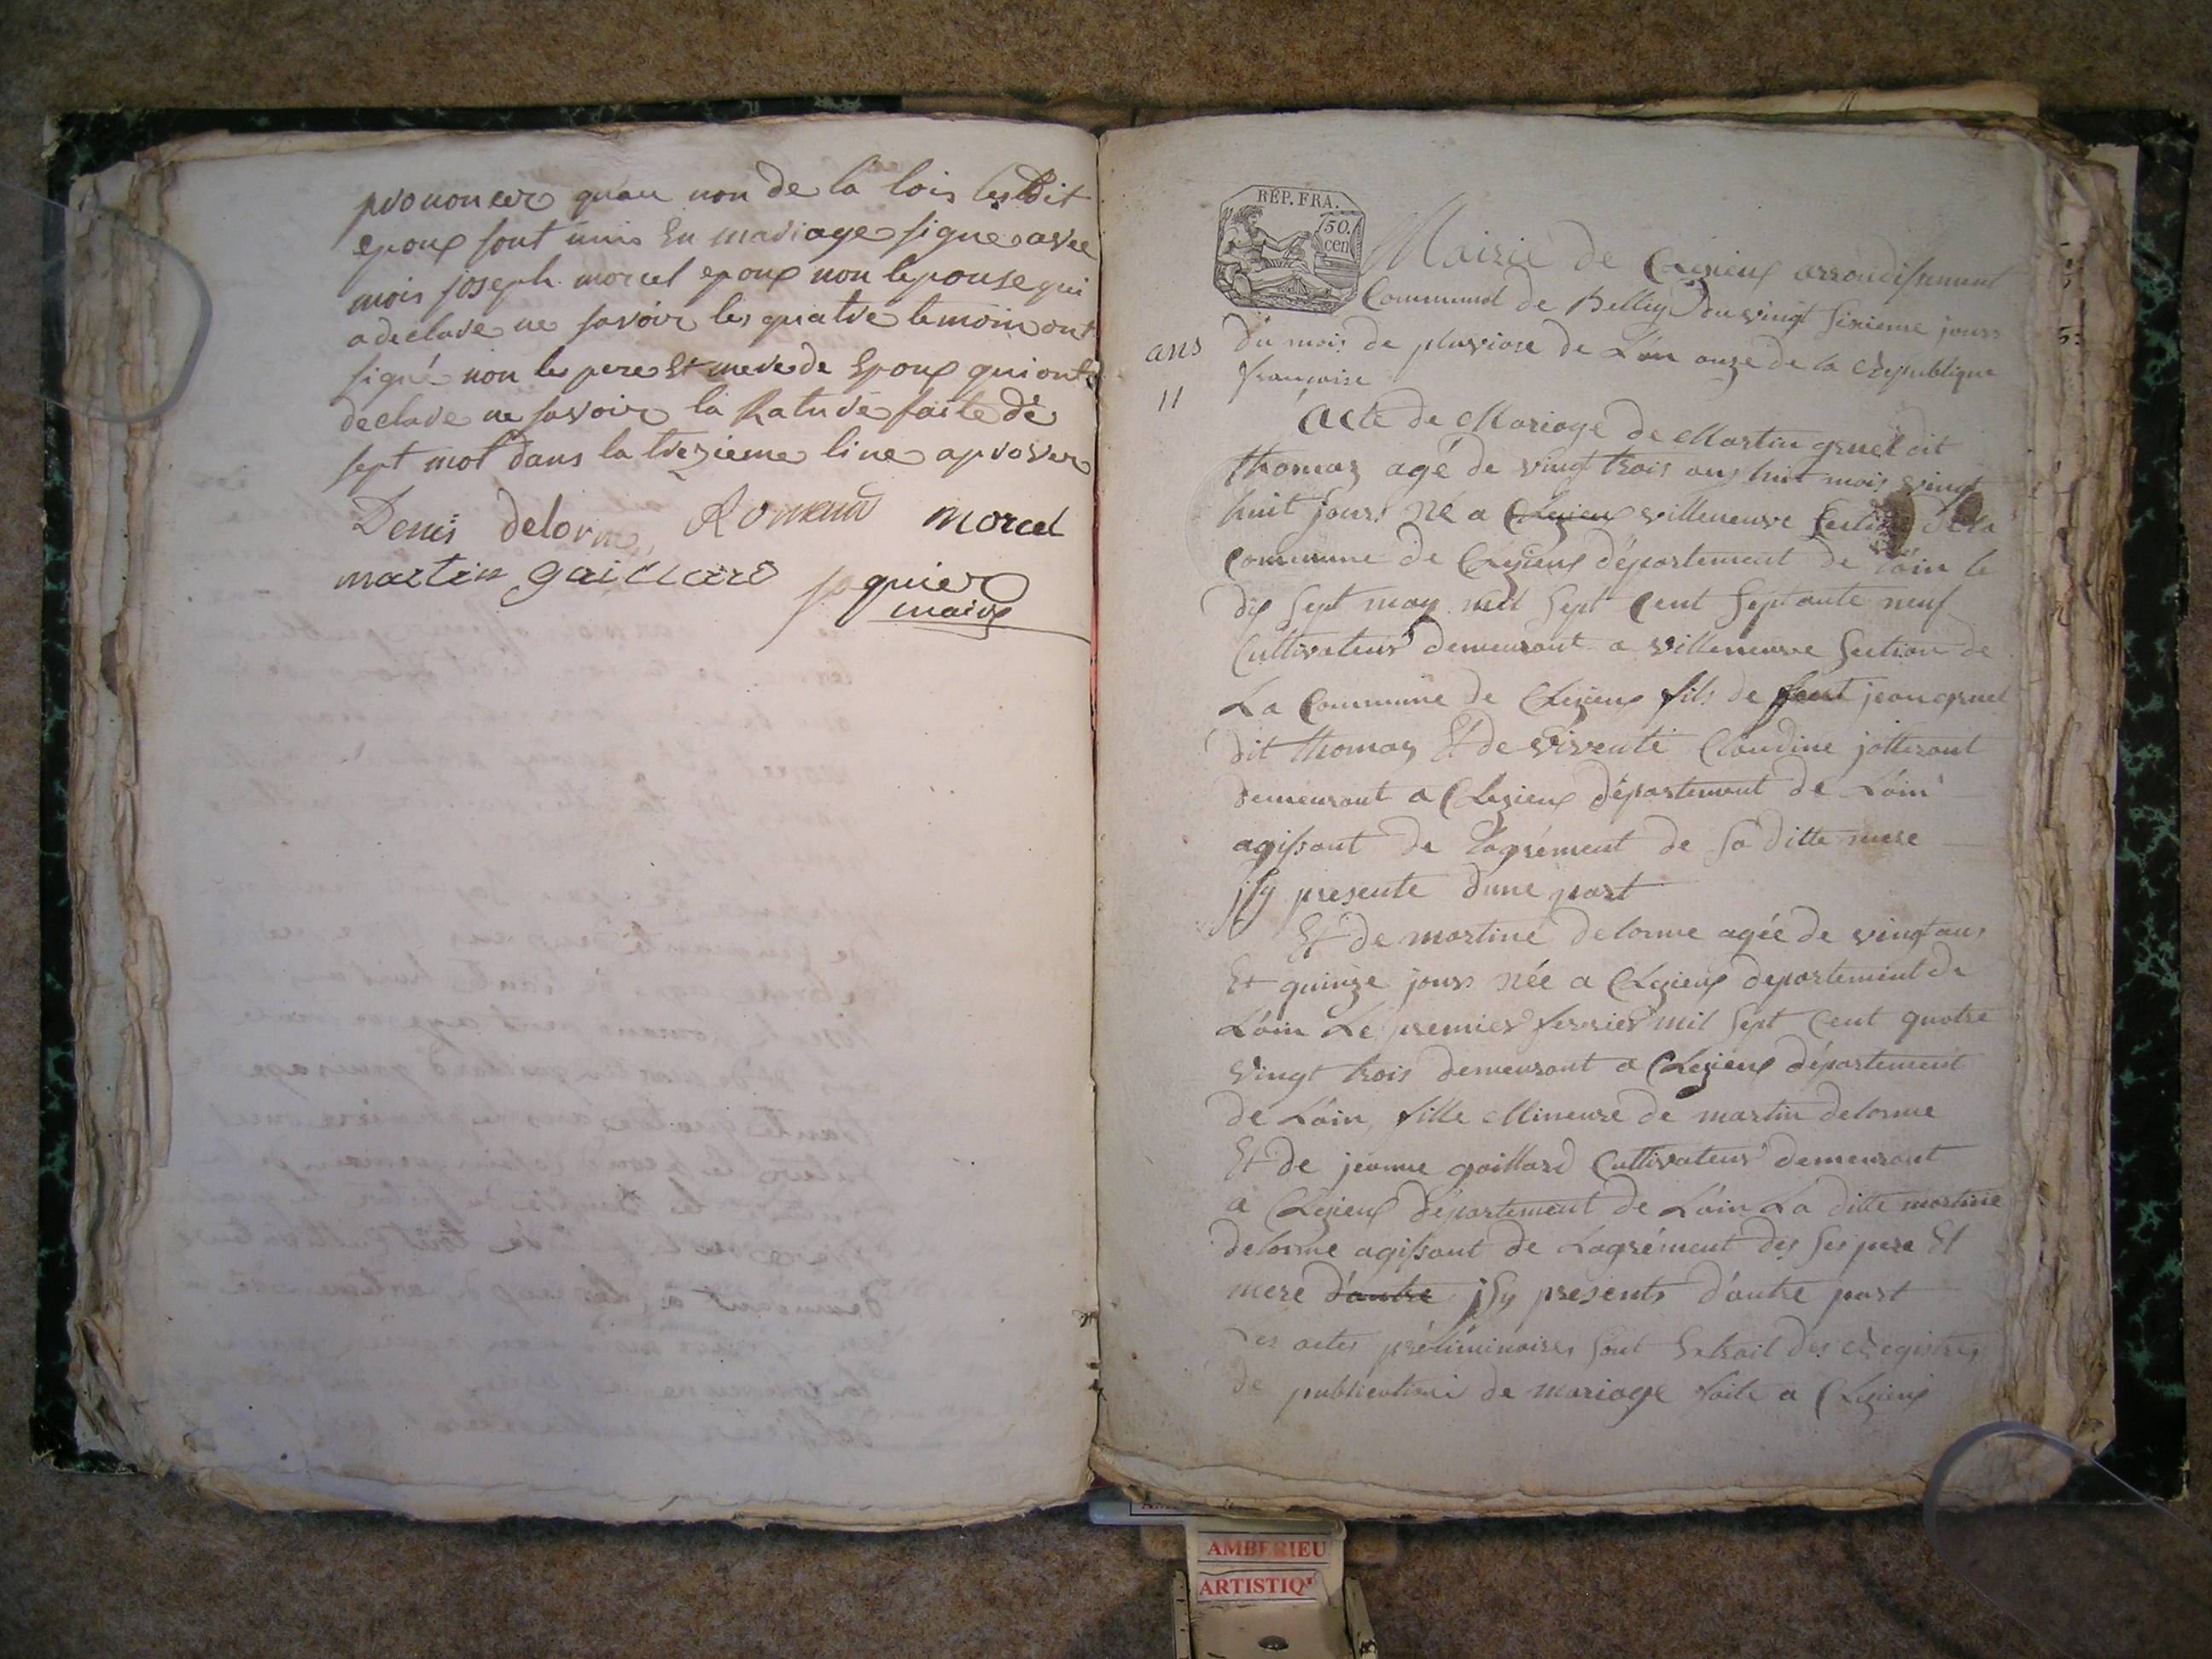 prononcer quau non de la lois les dit
epoux sont unis En mariage signe avec
mois joseph morcel epoux non lepouse qui
a declare ne savoir les quatre temoin ont
signé non le pere Et mere de Epoux qui ont
declare ne savoir la Rature faite de
sept mot dans la trezieme line aprover
Denis delorme Romand morcel
martin gaillard
maire
REP. FRA.
50.
cen
Mairie de Lhuieux arrondissement
Communal de Belley du vingt sixieme jours
du mois de pluviose de L'an onze de la Republique
francoise
ans
11
Acte de Mariage de Martin gruel dit
thomas agé de vingt trois ans huit mois vingt
huit jours né a villeneuve Section de la
Commune de département de L'ain le
dix sept may mil sept Cent septante neuf
Cultivateur demeurant a villeneuve Section de
La Commune de fils de jean gruel
dit thomas Et de vivente Claudine jotterant
demeurant a département de L'ain
agissant de L'agrément de sa ditte mere
jsy presente dune part
Et de martine delorme agée de vingt ans
Et quinze jours née a departement de
L'ain Le premier fevrier mil sept Cent quatre
vingt trois demeurant a département
de L'ain, fille Mineure de martin delorme
Et de jeanne gaillard Cultivateur demeurant
a département de L'ain La ditte martine
delorme agissant de Lagrément des ses pere Et
mere d'autre jsy presents d'autre part
Les actes préliminaires sont Extrait des Registres
de publication de mariage faite a
AMBERIEU
ARTISTIQ